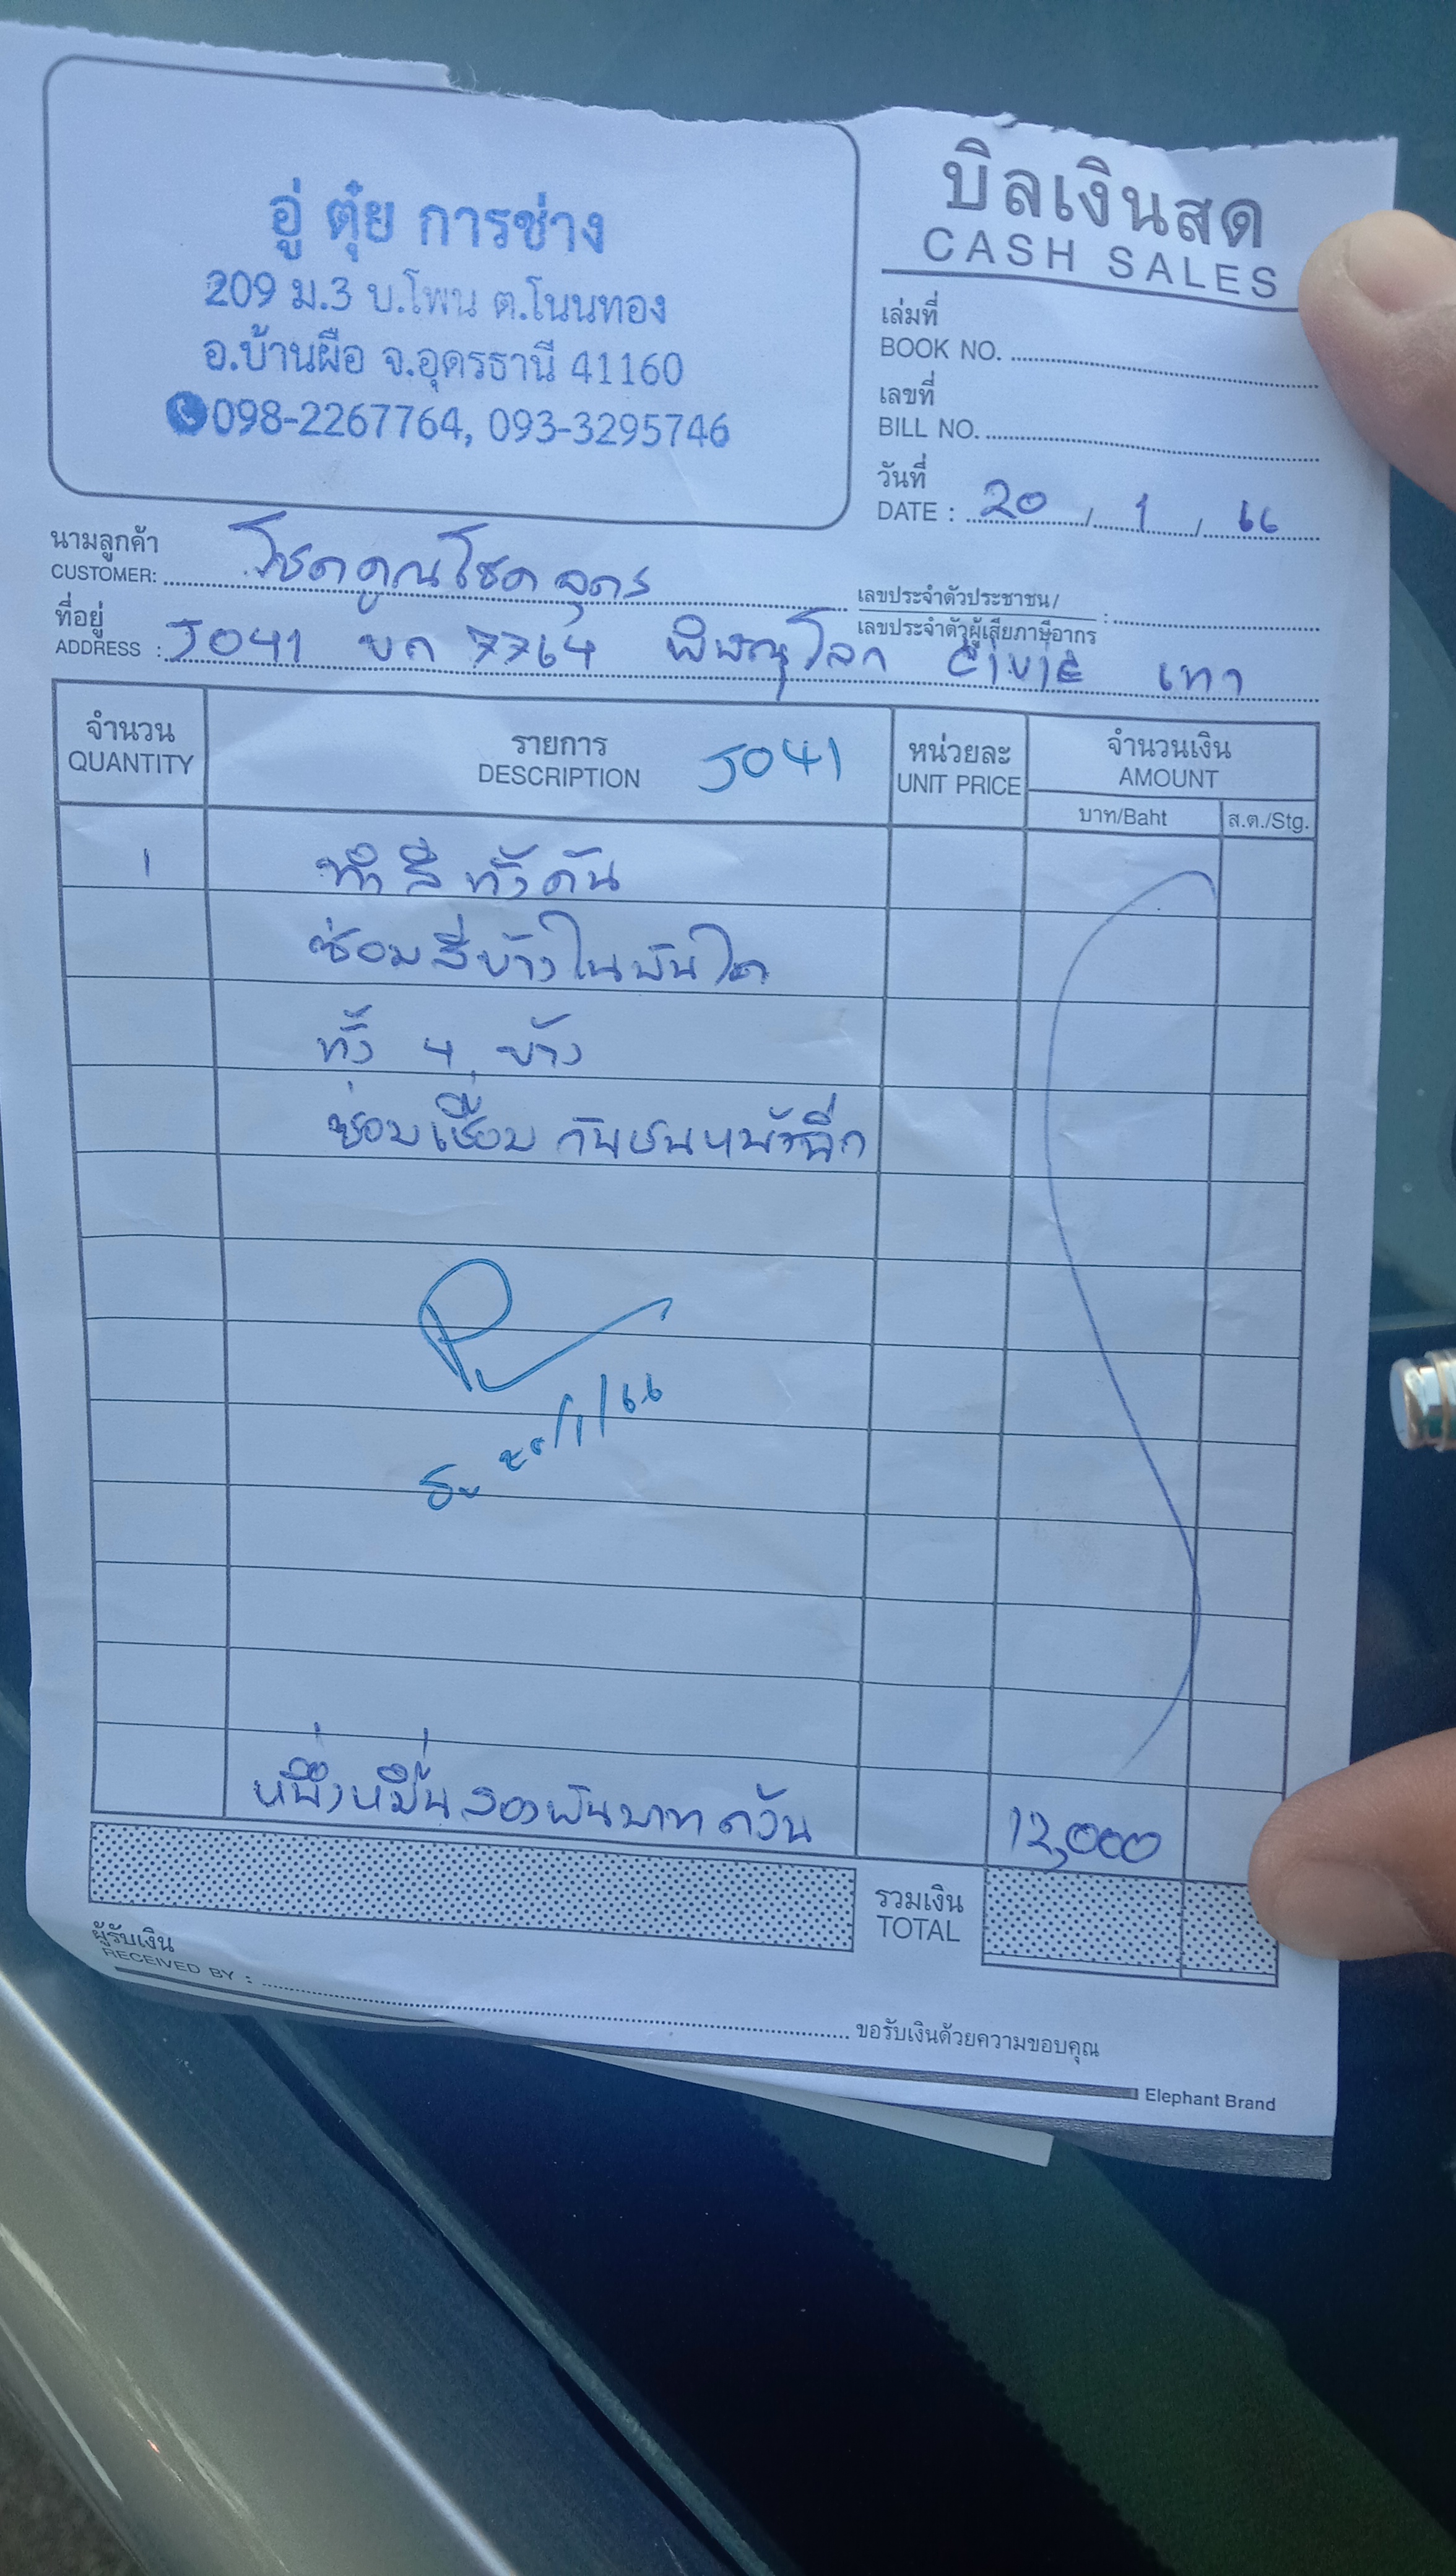 อู่ ตุ๋ย การช่าง
209 ม.3 บ.โพน ต.โนนทอง
อ.บ้านผือ จ.อุดรธานี 41160
098-2267764, 093-3295746
บิลเงินสด
CASH SALES
เล่มที่
BOOK NO.
เลขที่
BILL NO.
วันที่
DATE : 20 / 1 / 66
นามลูกค้า
CUSTOMER: โชคคูณโชค อุดร
เลขประจำตัวประชาชน/
เลขประจำตัวผู้เสียภาษีอากร :
ที่อยู่
ADDRESS : J041 บก 7764 พิษณุโลก civic เทา
จำนวน
QUANTITY
รายการ
DESCRIPTION J041
หน่วยละ
UNIT PRICE
จำนวนเงิน
AMOUNT
บาท/Baht ส.ต./Stg.
1 ทำสีทั้งคัน
ซ่อมสีข้างในบันได
ทั้ง 4 ข้าง
ซ่อมเชื่อม กันชนหน้าฉีก
20/1/66
หนึ่งหมื่นสองพันบาทถ้วน 12,000
รวมเงิน
TOTAL
ผู้รับเงิน
RECEIVED BY :
ขอรับเงินด้วยความขอบคุณ
Elephant Brand